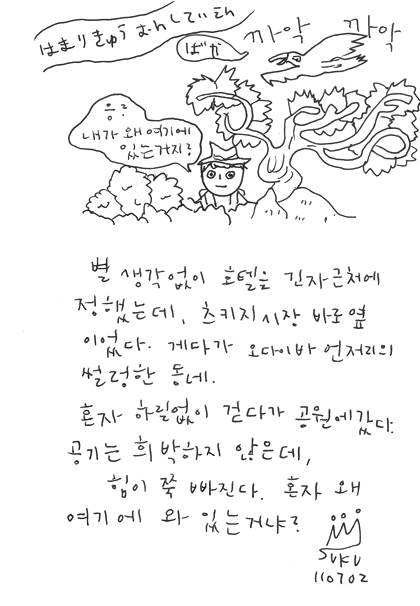 はまりきゅうおんしていえん
ばか
까악 까악
응?
내가 왜 여기에
있는거지?
별 생각없이 호텔을 긴자근처에
정했는데, 츠키지시장 바로옆
이었다. 게다가 오다이바 언저리의
썰렁한 동네.
혼자 하릴없이 걷다가 공원에갔다.
공기는 희박하지 않은데,
힘이 쭉 빠진다. 혼자 왜
여기에 와 있는거냐?
SUKU
110702